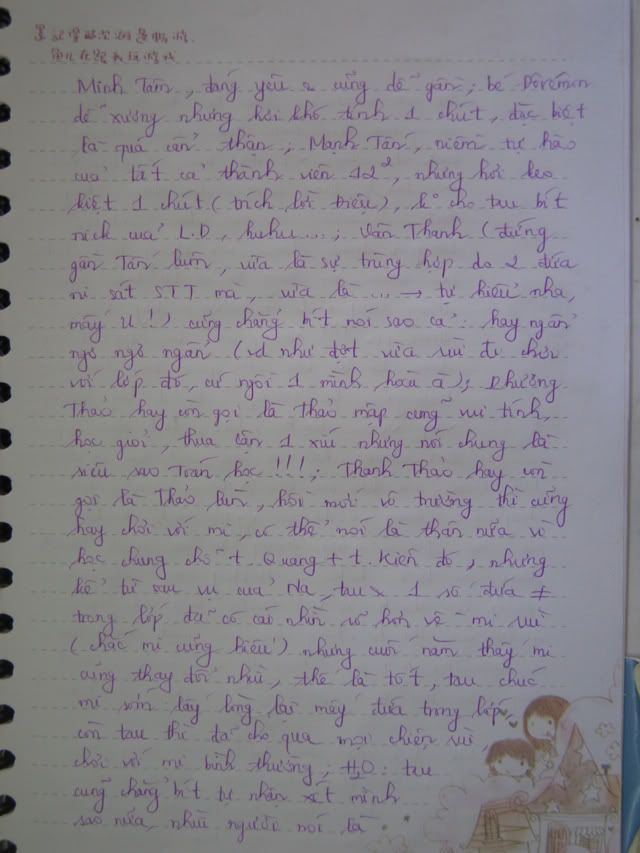 Minh Tấn, đáng yêu & cũng dễ gần; bé Dorémon
dễ xương nhưng hơi khó tính 1 chút, đặc biệt
là quá cẩn thận; Mạnh Tấn, niềm tự hào
của tất cả thành viên 12², nhưng hơi keo
kiệt 1 chút (trích lời Triệu), k° cho tau bít
nick cuả L.D, huhu...; Văn Thanh (đứng
gần Tấn luôn, vừa là sự trùng hợp do 2 đứa
ni sát STT mà, vừa là ... → tự hiểu nha,
mấy U!) cũng chẳng bít nói sao cả: hay ngẩn
ngơ ngơ ngẩn (vd như đợt vừa rùi đi chơi
với lớp đó, cứ ngồi 1 mình hoài à); Phương
Thảo hay còn gọi là thảo mập cũng vui tính,
học giỏi, thua cận 1 xúi nhưng nói chung là
siêu sao Toán học!!!; Thanh Thảo hay còn
gọi là Thảo lùn, hồi mới vô trường thì cũng
hay chơi với mi, có thể nói là thân nữa vì
học chung chỗ t. Quang + t. Kiên đó, nhưng
kể từ sau vụ cuả Na, tau x 1 số đứa ≠
trong lớp đã có cái nhìn # hơn về mi rùi
(chắc mi cũng hiểu) nhưng cuối năm thấy mi
cũng thay đổi nhìu, thế là tốt, tau chúc
mi sớm lấy lòng lại mấy đứa trong lớp,
còn tau thì đã cho qua mọi chiện rùi,
chơi với mi bình thường; H₂O: tau
cũng chẳng bít tự nhận xét mình
sao nữa, nhìu người nói là